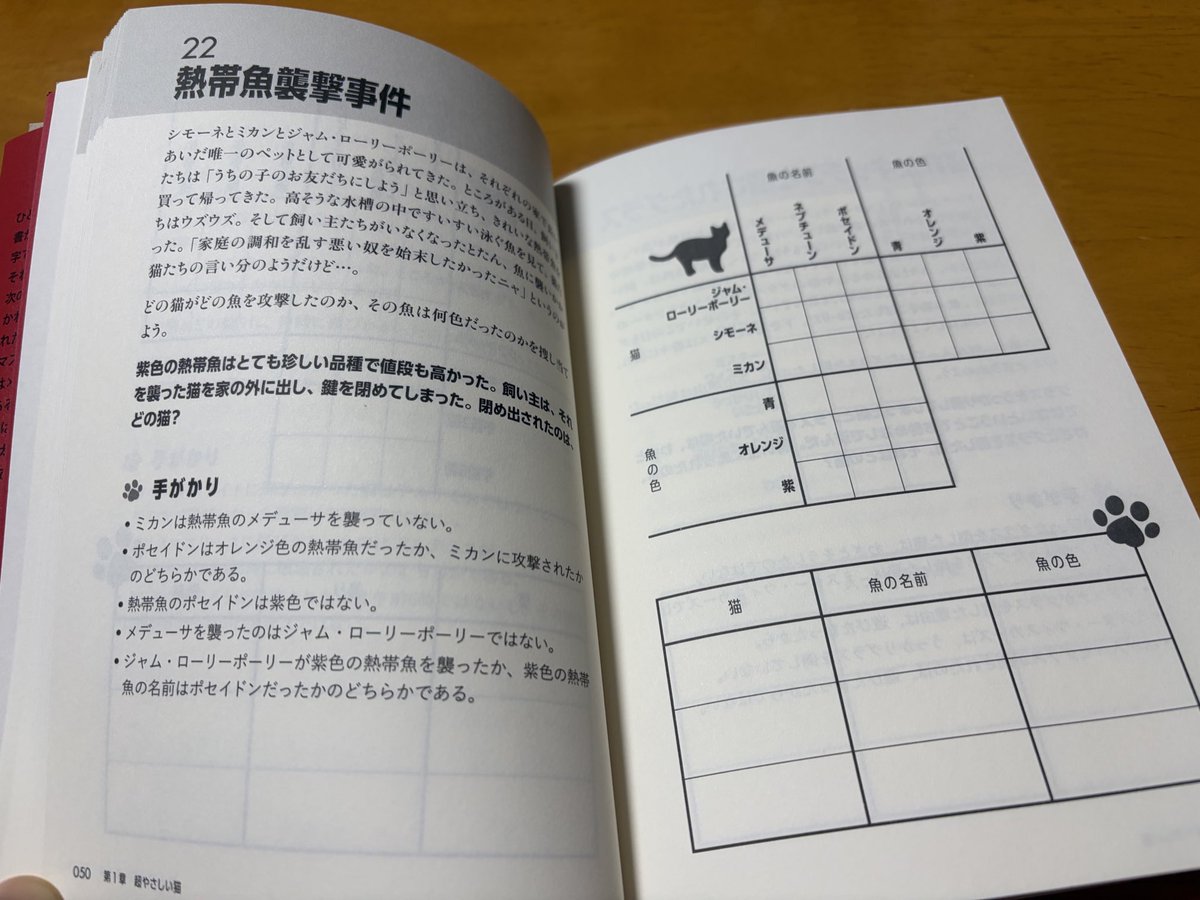 22
熱帯魚襲撃事件
シモーネとミカンとジャム・ローリーポーリーは、それぞれの
あいだ唯一のペットとして可愛がられてきた。ところがある日、
たちは「うちの子のお友だちにしよう」と思い立ち、きれいな熱帯
買って帰ってきた。高そうな水槽の中ですいすい泳ぐ魚を見て、
ちはウズウズ。そして飼い主たちがいなくなったとたん、魚に襲い
った。「家庭の調和を乱す悪い奴を始末したかったニャ」というの
猫たちの言い分のようだけど…。
どの猫がどの魚を攻撃したのか、その魚は何色だったのかを捜し当て
よう。
紫色の熱帯魚はとても珍しい品種で値段も高かった。飼い主は、それ
を襲った猫を家の外に出し、鍵を閉めてしまった。閉め出されたのは、
どの猫?
手がかり
・ミカンは熱帯魚のメデューサを襲っていない。
・ポセイドンはオレンジ色の熱帯魚だったか、ミカンに攻撃されたか
のどちらかである。
・熱帯魚のポセイドンは紫色ではない。
・メデューサを襲ったのはジャム・ローリーポーリーではない。
・ジャム・ローリーポーリーが紫色の熱帯魚を襲ったか、紫色の熱帯
魚の名前はポセイドンだったかのどちらかである。
050 第1章 超やさしい猫
魚の名前
魚の色
メデューサ
ネプチューン
ポセイドン
青
オレンジ
紫
猫
ジャム・
ローリーポーリー
シモーネ
ミカン
魚の色
青
オレンジ
紫
猫
魚の名前
魚の色